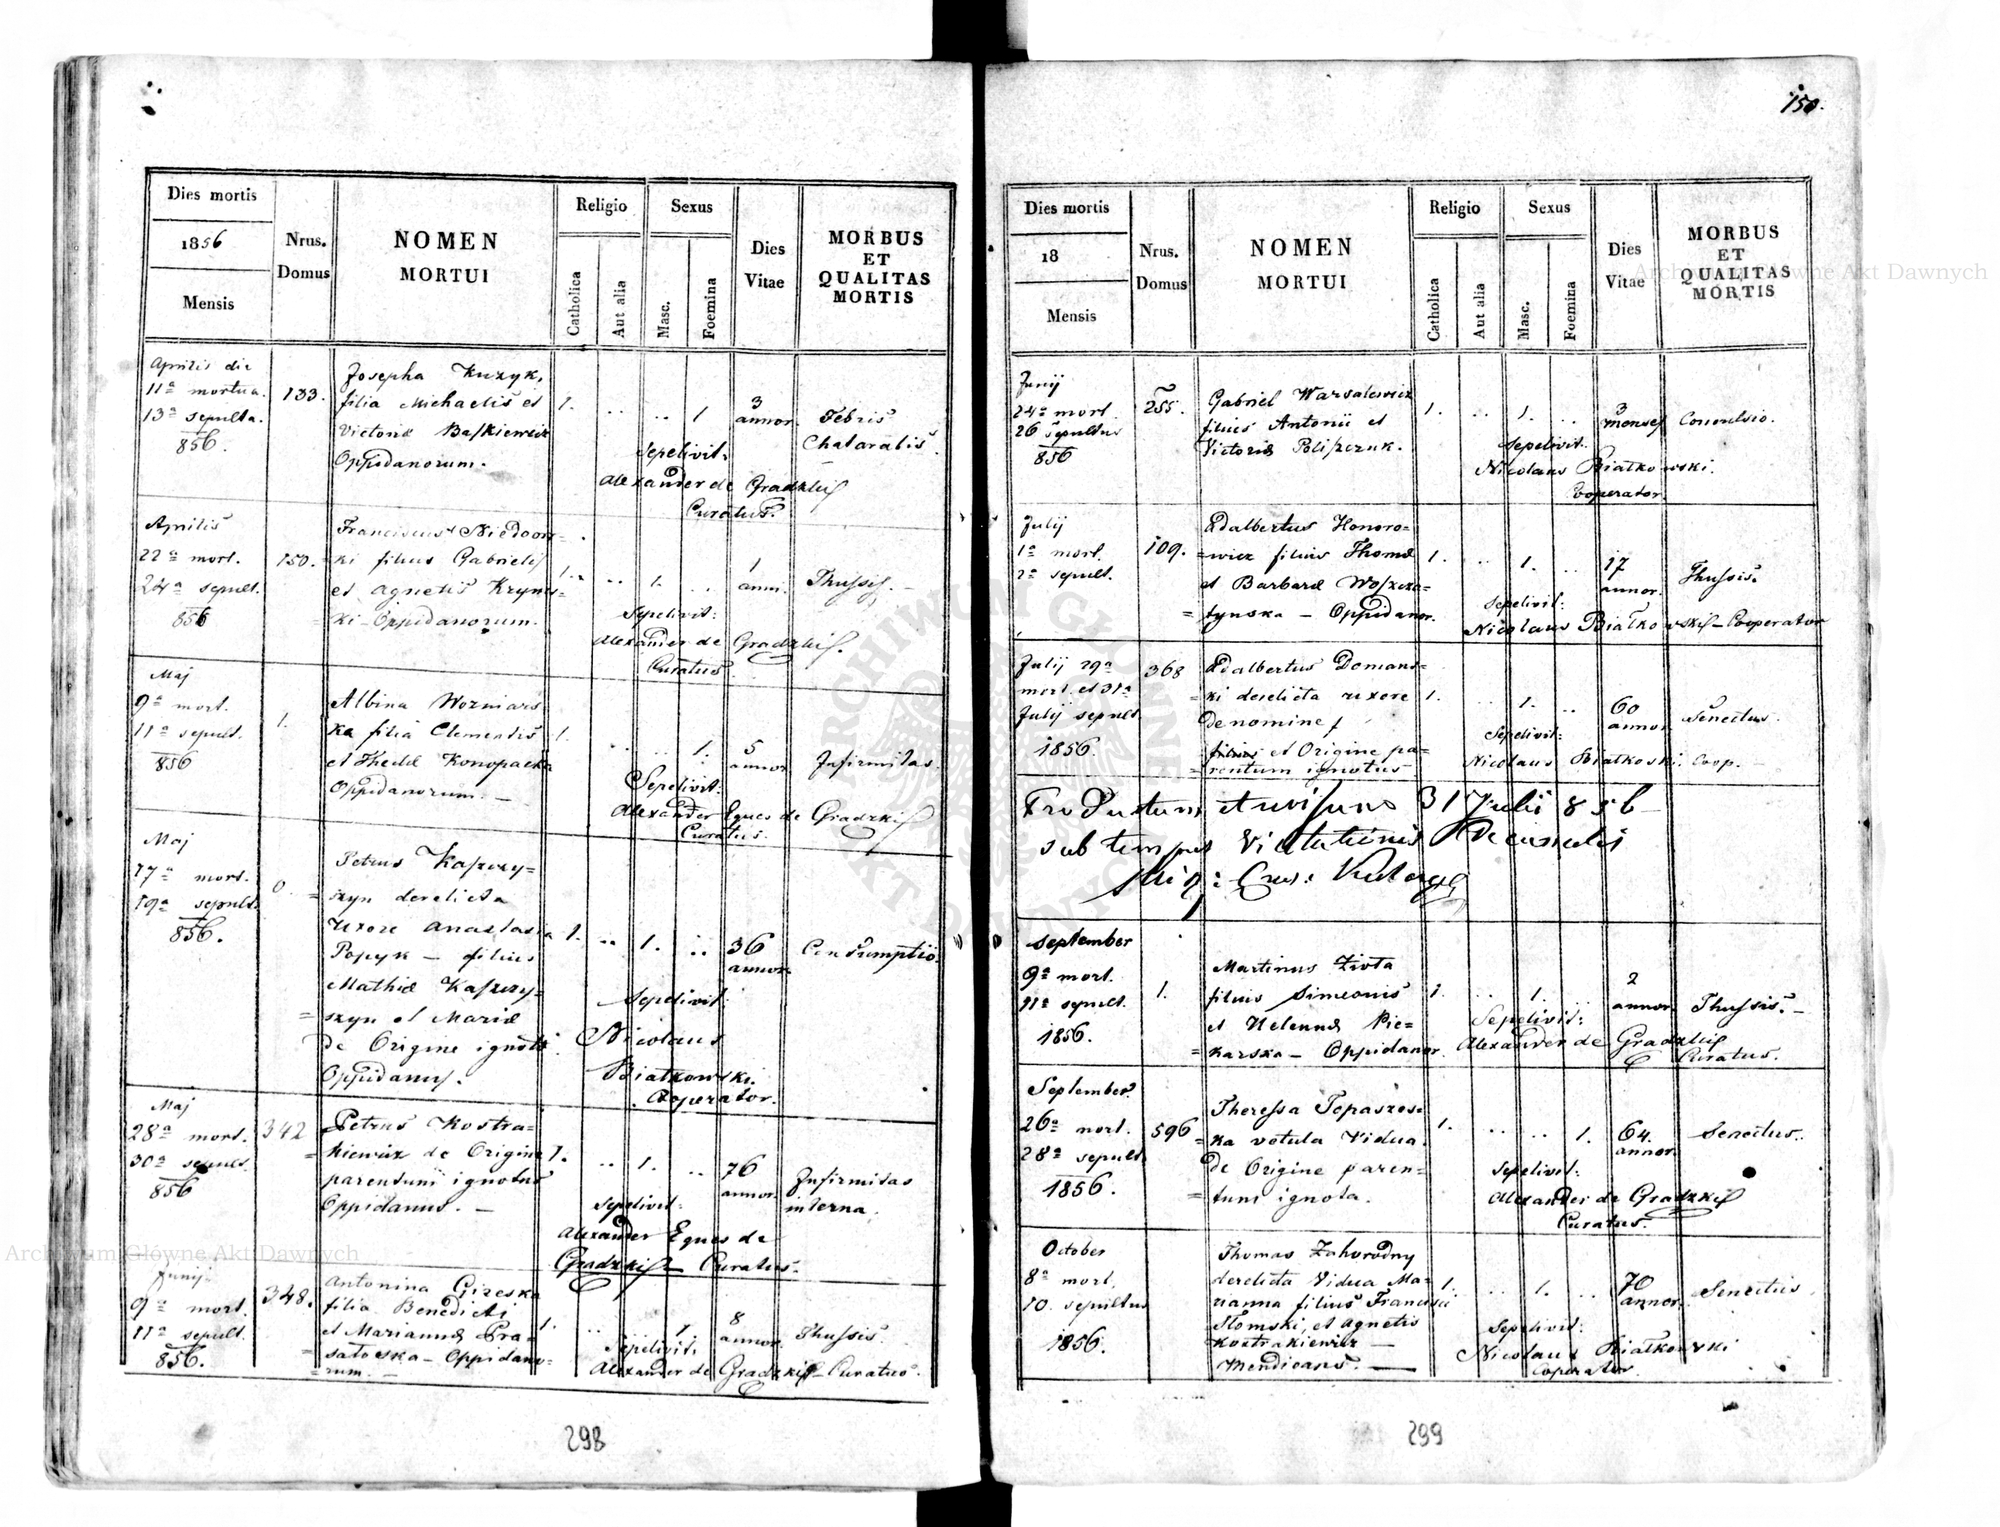 150.
Dies mortis
1856
Mensis
Nrus.
Domus
NOMEN
MORTUI
Religio
Catholica
Aut alia
Sexus
Masc.
Foemina
Dies
Vitae
MORBUS
ET
QUALITAS
MORTIS
Aprilis die
11ª mortua.
13ª sepulta.
856.
133.
Josepha Kuzyk,
filia Michaelis et
Victoriæ Baſkiewicz
Oppidanorum.
1.
..
..
1
3
annor.
Febris
Chataralis.
Sepelivit:
Alexander de Gradzkiſ
Curatus.
Aprilis
22ª mort.
24ª sepult.
856
150.
Franciscus
ki filius Gabrielis
et Agnetis
ki - Oppidanorum.
1.
..
1.
..
1
anni.
Thuſsis.
Sepelivit:
Alexander de Gradzkiſ.
Curatus
Maj
9ª mort.
11ª sepult.
856
1.
Albina Wozniars
ka filia Clementis
et Theclæ Konopacka
Oppidanorum. —
1.
..
..
1.
5
annor
Infirmitas.
Sepelivit:
Alexander Eques de Gradzkiſ
Curatus.
Maj
17ª mort.
19ª sepult.
856.
0.
Petrus Kaſprzy=
=szyn derelicta
Uxore Anastasia
Popyk — filius
Mathiæ Kaſprzy=
=szyn et Mariæ
de Origine ignotæ
Oppidanus.
1.
..
1.
..
36
annor.
Consumptio.
Sepelivit:
Nicolaus
Białkowski.
Cooperator.
Maj
28ª mort.
30ª sepult.
856
342
Petrus Kostra=
=kiewicz de Origine
parentum ignotus
Oppidanus. —
1.
..
1.
..
76
annor.
Infirmitas
interna.
Sepelivit:
Alexander Eques de
Gradzkiſ — Curatus.
Junij
9ª mort.
11ª sepult.
856.
348.
Antonina Gireska
filia Benedicti
et Mariannæ Pra=
=satoska — Oppidano=
=rum. —
1.
..
1
8
annor.
Thuſsis.
Sepelivit:
Alexander de Gradzkiſ — Curatus.
298
Dies mortis
18
Mensis
Nrus.
Domus
NOMEN
MORTUI
Religio
Catholica
Aut alia
Sexus
Masc.
Foemina
Dies
Vitae
MORBUS
ET
QUALITAS
MORTIS
Junij
24ª mort.
26 sepultus
856
255.
Gabriel Warsalewicz
filius Antonii et
Victoriæ Poliſzczuk.
1.
..
1.
..
3
menses
Convulsio.
Sepelivit:
Nicolaus Białkowski.
Cooperator
Julij
1ª mort.
2ª sepult.
109.
Adalbertus Honoro=
=wicz filius Thomæ
et Barbaræ Woſzcza=
=tynska — Oppidanor.
1.
..
1.
..
17
annor.
Thuſsis.
Sepelivit:
Nicolaus Białkowskiſ — Cooperator
Julij 29ª
mort. et 31ª
Julij sepult.
1856.
368
Adalbertus Domans=
=ki derelicta uxore
de nomine
filius et Origine pa=
=rentum ignotus
1.
..
1.
..
60
annor.
Senectus.
Sepelivit:
Nicolaus Białkoski. Coop. —
Productum et revisum 31 Julii 856
sub tempus Visitationis Decanalis
September
9ª mort.
11ª sepult.
1856.
1.
Martinus Zivta
filius Simeonis
et Helennæ Pie=
=karska — Oppidanor.
1.
..
1.
..
2
annor.
Thuſsis. —
Sepelivit:
Alexander de Gradzkiſ
Curatus.
September
26ª mort.
28ª sepult.
1856.
596
Thereſsa Topaszos=
=ka votula Vidua.
de Origine paren=
=tum ignota.
1.
..
..
1.
64.
annor.
Senectus.
Sepelivit:
Alexander de Gradzkiſ
Curatus.
October
8ª mort.
10. sepultus
1856.
Thomas Zahorodny
derelicta Vidua Ma=
rianna filius Francisci
Słomski, et Agnetis
Kostrakiewicz —
Mendicans. —
1.
..
1.
..
70
annor.
Senectus.
Sepelivit:
Nicolaus Białkowski
Cooperator.
299
Archiwum Główne Akt Dawnych
Archiwum Główne Akt Dawnych
ARCHIWUM GŁÓWNE AKT DAWNYCH